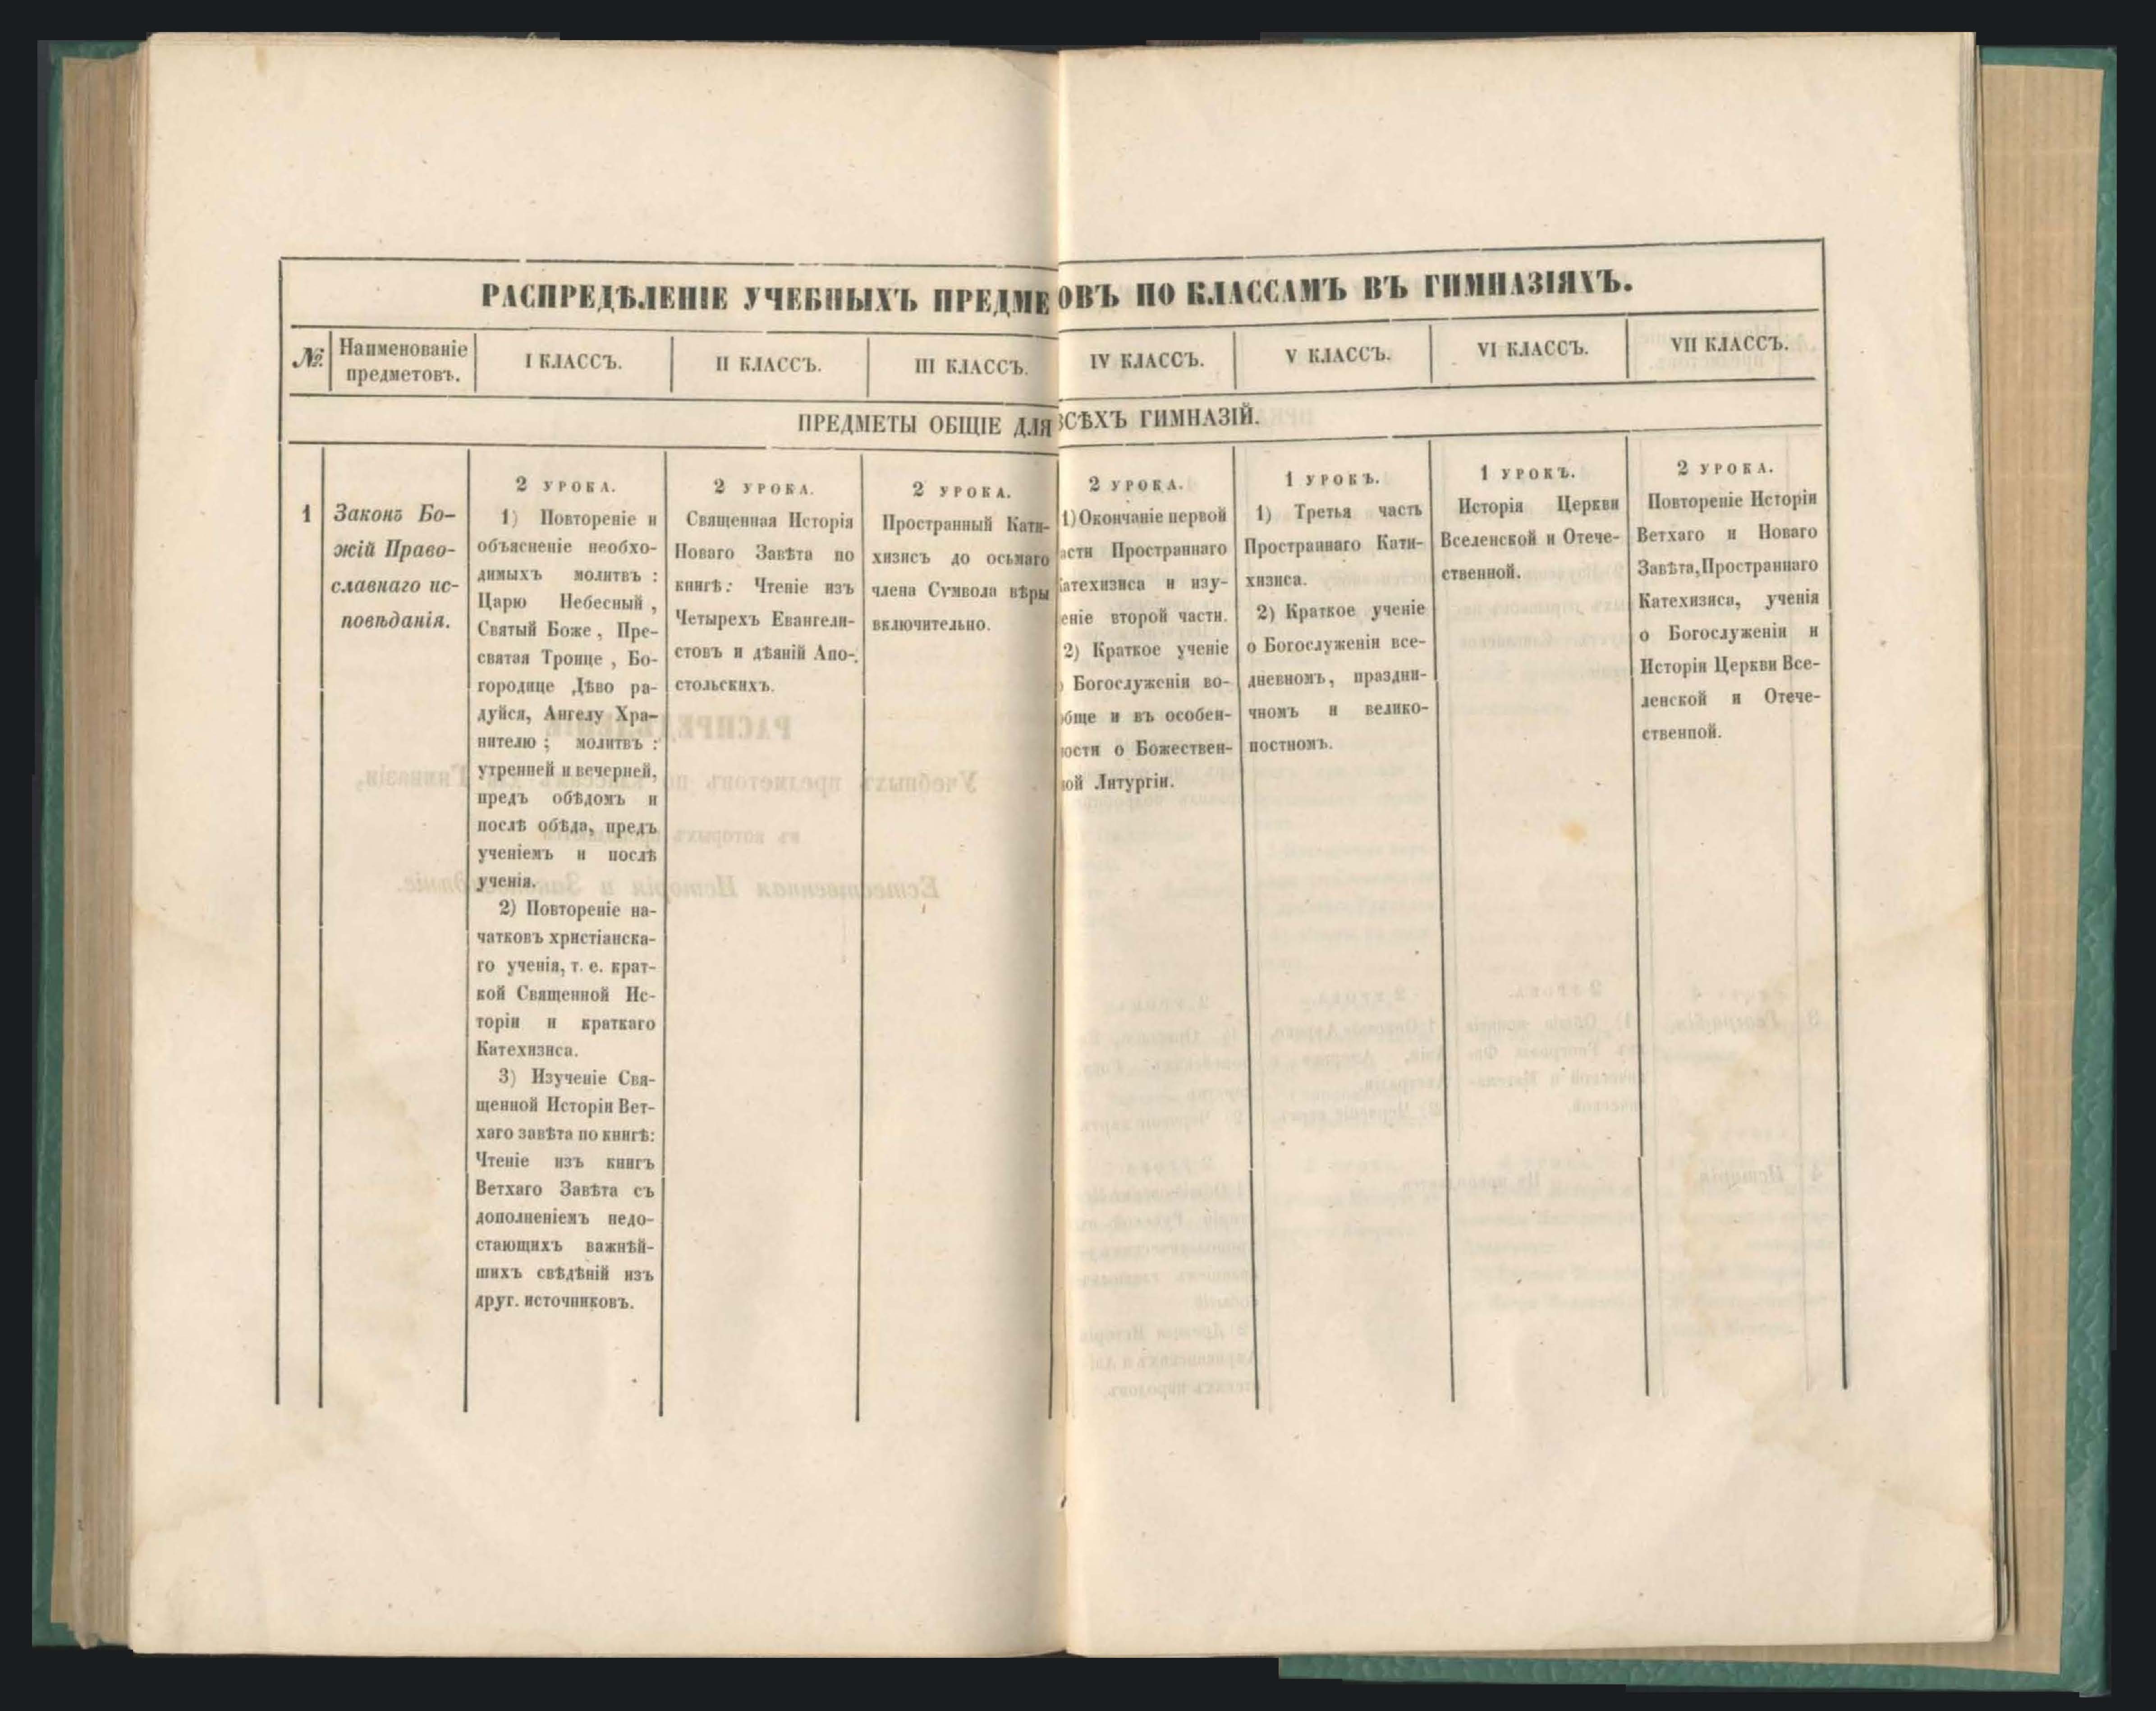 РАСПРЕДѢЛЕНІЕ УЧЕБНЫХЪ ПРЕДМЕ ОВЪ ПО КЛАССАМЪ ВЪ ГИМНАЗІЯХЪ.
№ Наименованіе предметовъ. I КЛАССЪ. II КЛАССЪ. III КЛАССЪ. IV КЛАССЪ. V КЛАССЪ. VI КЛАССЪ. VII КЛАССЪ.
ПРЕДМЕТЫ ОБЩІЕ ДЛЯ ВСѢХЪ ГИМНАЗІЙ.
1
Законъ Бо-
жій Право-
славнаго ис-
повѣданія.
2 УРОКА.
1) Повтореніе и
объясненіе необхо-
димыхъ молитвъ :
Царю Небесный ,
Святый Боже , Пре-
святая Троице , Бо-
городице Дѣво ра-
дуйся, Ангелу Хра-
нителю ; молитвъ :
утренней и вечерней,
предъ обѣдомъ и
послѣ обѣда, предъ
ученіемъ и послѣ
ученія.
2) Повтореніе на-
чатковъ христіанска-
го ученія, т. е. крат-
кой Священной Ис-
торіи и краткаго
Катехизиса.
3) Изученіе Свя-
щенной Исторіи Вет-
хаго завѣта по книгѣ:
Чтеніе изъ книгъ
Ветхаго Завѣта съ
дополненіемъ недо-
стающихъ важнѣй-
шихъ свѣдѣній изъ
друг. источниковъ.
2 УРОКА.
Священная Исторія
Новаго Завѣта по
книгѣ: Чтеніе изъ
Четырехъ Евангели-
стовъ и дѣяній Апо-
стольскихъ.
2 УРОКА.
Пространный Кати-
хизисъ до осьмаго
члена Сѵмвола вѣры
включительно.
2 УРОКА.
1) Окончаніе первой
асти Пространнаго
Катехизиса и изу-
еніе второй части.
2) Краткое ученіе
о Богослуженіи во-
обще и въ особен-
ности о Божествен-
ной Литургіи.
1 УРОКЪ.
1) Третья часть
Пространнаго Кати-
хизиса.
2) Краткое ученіе
о Богослуженіи все-
дневномъ, праздни-
чномъ и велико-
постномъ.
1 УРОКЪ.
Исторія Церкви
Вселенской и Отече-
ственной.
2 УРОКА.
Повтореніе Исторіи
Ветхаго и Новаго
Завѣта, Пространнаго
Катехизиса, ученія
о Богослуженіи и
Исторіи Церкви Все-
ленской и Отече-
ственной.